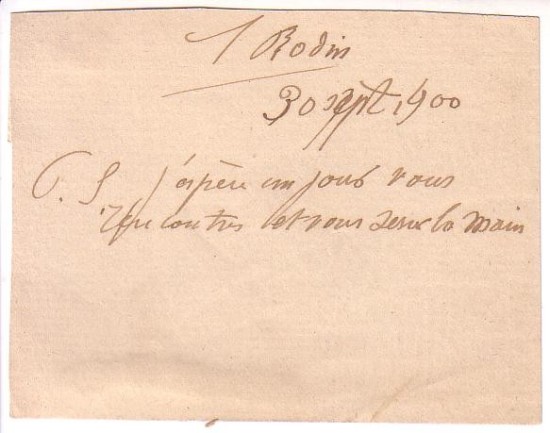 Rodin
30 sept 1900
P. S j'espère un jour vous
rencontrer et vous serrer la main